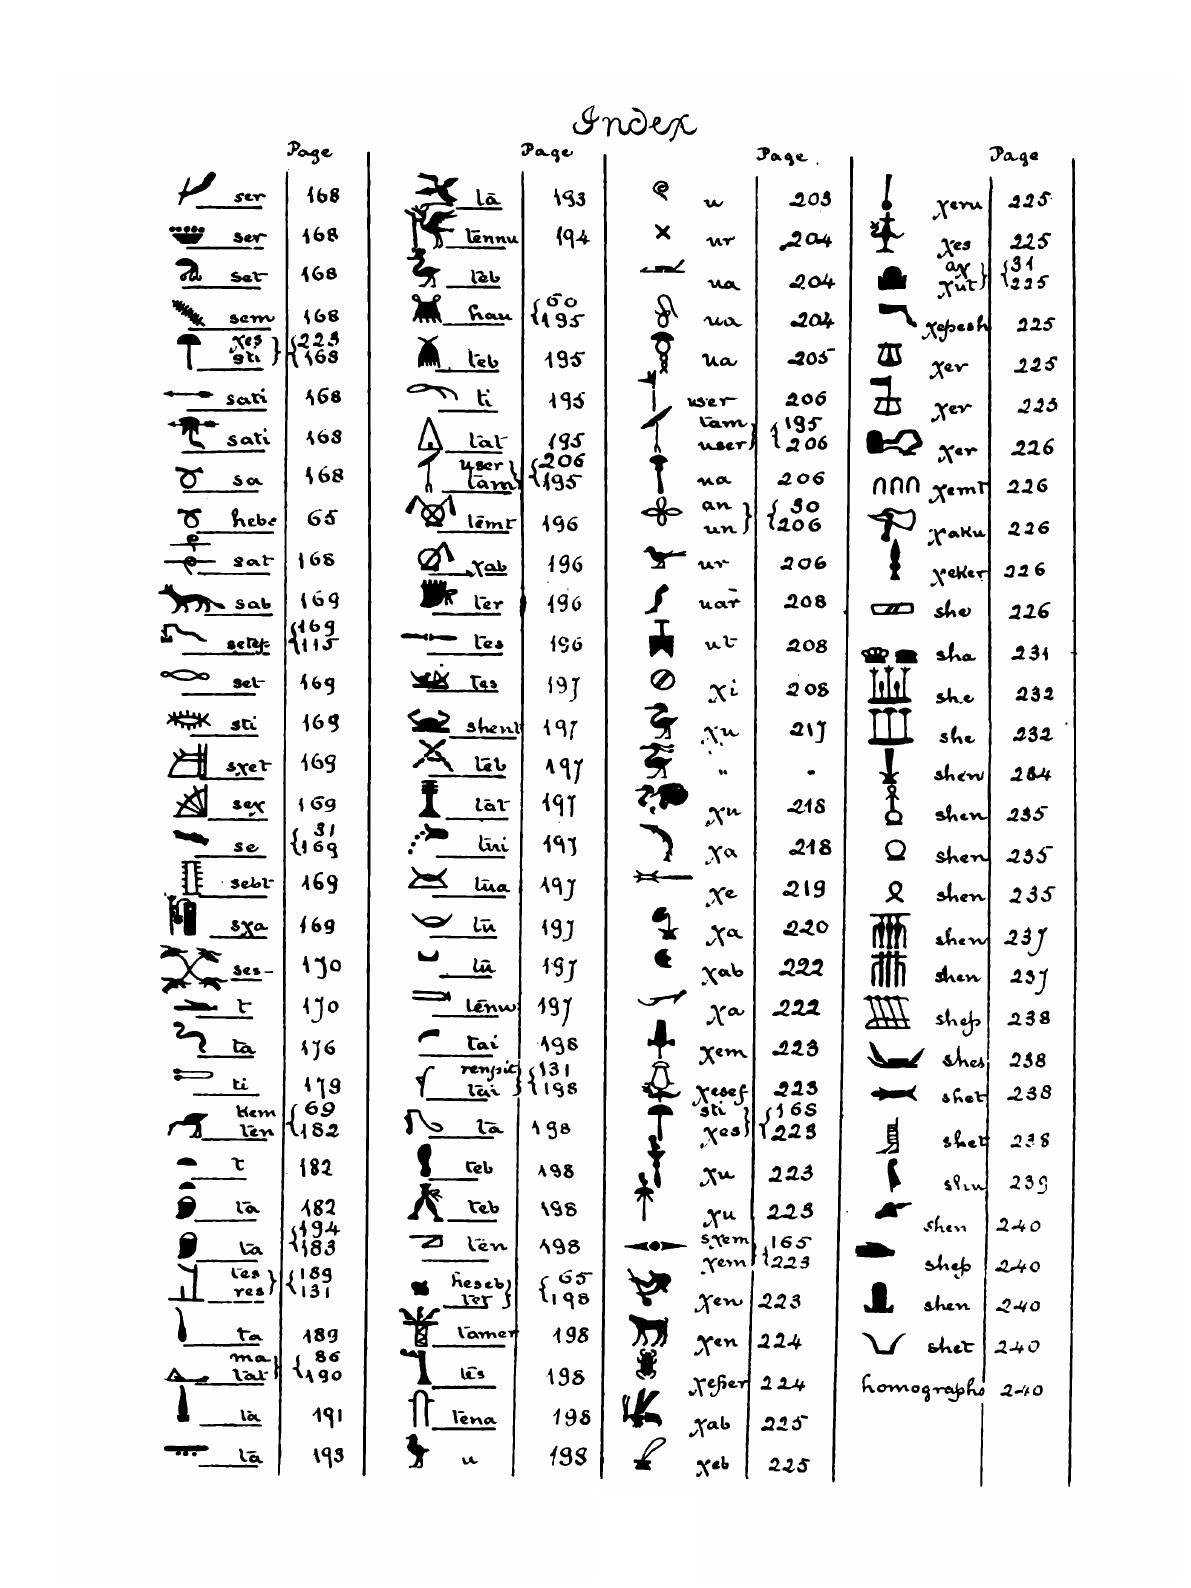 Index
Page
ser 168
ser 168
set 168
sem 168
χes 223
sti 168
sati 168
sati 168
sa 168
hebs 65
sat 168
sab 169
setep 169
115
set 169
sti 169
sχet 169
seχ 169
se 31
169
sebt 169
sχa 169
ses- 170
t 170
ta 176
ti 179
kem 69
ten 182
t 182
ta 182
ta 194
183
tes 189
res 131
ta 189
ma 86
tat 190
ta 191
ta 193
Page
tā 193
tennu 194
teb
hau 60
195
teb 195
ti 195
tat 195
user 206
tam 195
temt 196
χab 196
ter 196
tes 196
tes 197
shent 197
teb 197
tat 197
tui 197
tua 197
tu 197
tu 197
tenu 197
tai 198
renpit 131
tai 198
ta 198
teb 198
teb 198
ten 198
heseb 65
tet 198
tamer 198
tes 198
tena 198
u 198
Page
u 203
ur 204
ua 204
ua 204
ua 205
user 206
tam 195
user 206
ua 206
an 30
un 206
ur 206
uar 208
ut 208
χi 208
χu 217
" "
χu 218
χa 218
χe 219
χa 220
χab 222
χa 222
χem 223
χesef 223
sti 168
χes 223
χu 223
χu 223
sχem 165
χem 223
χen 223
χen 224
χeper 224
χab 225
χeb 225
Page
χeru 225
χes 225
aχ 31
χut 225
χepesh 225
χer 225
χer 225
χer 226
χemt 226
χaku 226
χeker 226
she 226
sha 231
she 232
she 232
shen 234
shen 235
shen 235
shen 235
shen 237
shen 237
shep 238
shes 238
shet 238
shet 238
shu 239
shen 240
shep 240
shen 240
shet 240
homographs 240